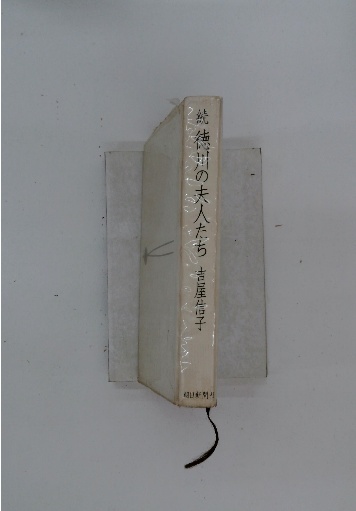 続 徳川の夫人たち 吉屋信子
朝日新聞社